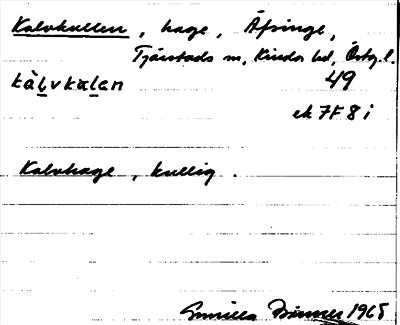 Kalvkullen, hage, Äfringe,
Tjärstads sn, Kinda hd, Östg. l.
kàḷvkaḷen 49
ek 7F 8 i
Kalvhage, kullig.
Gunilla 1965